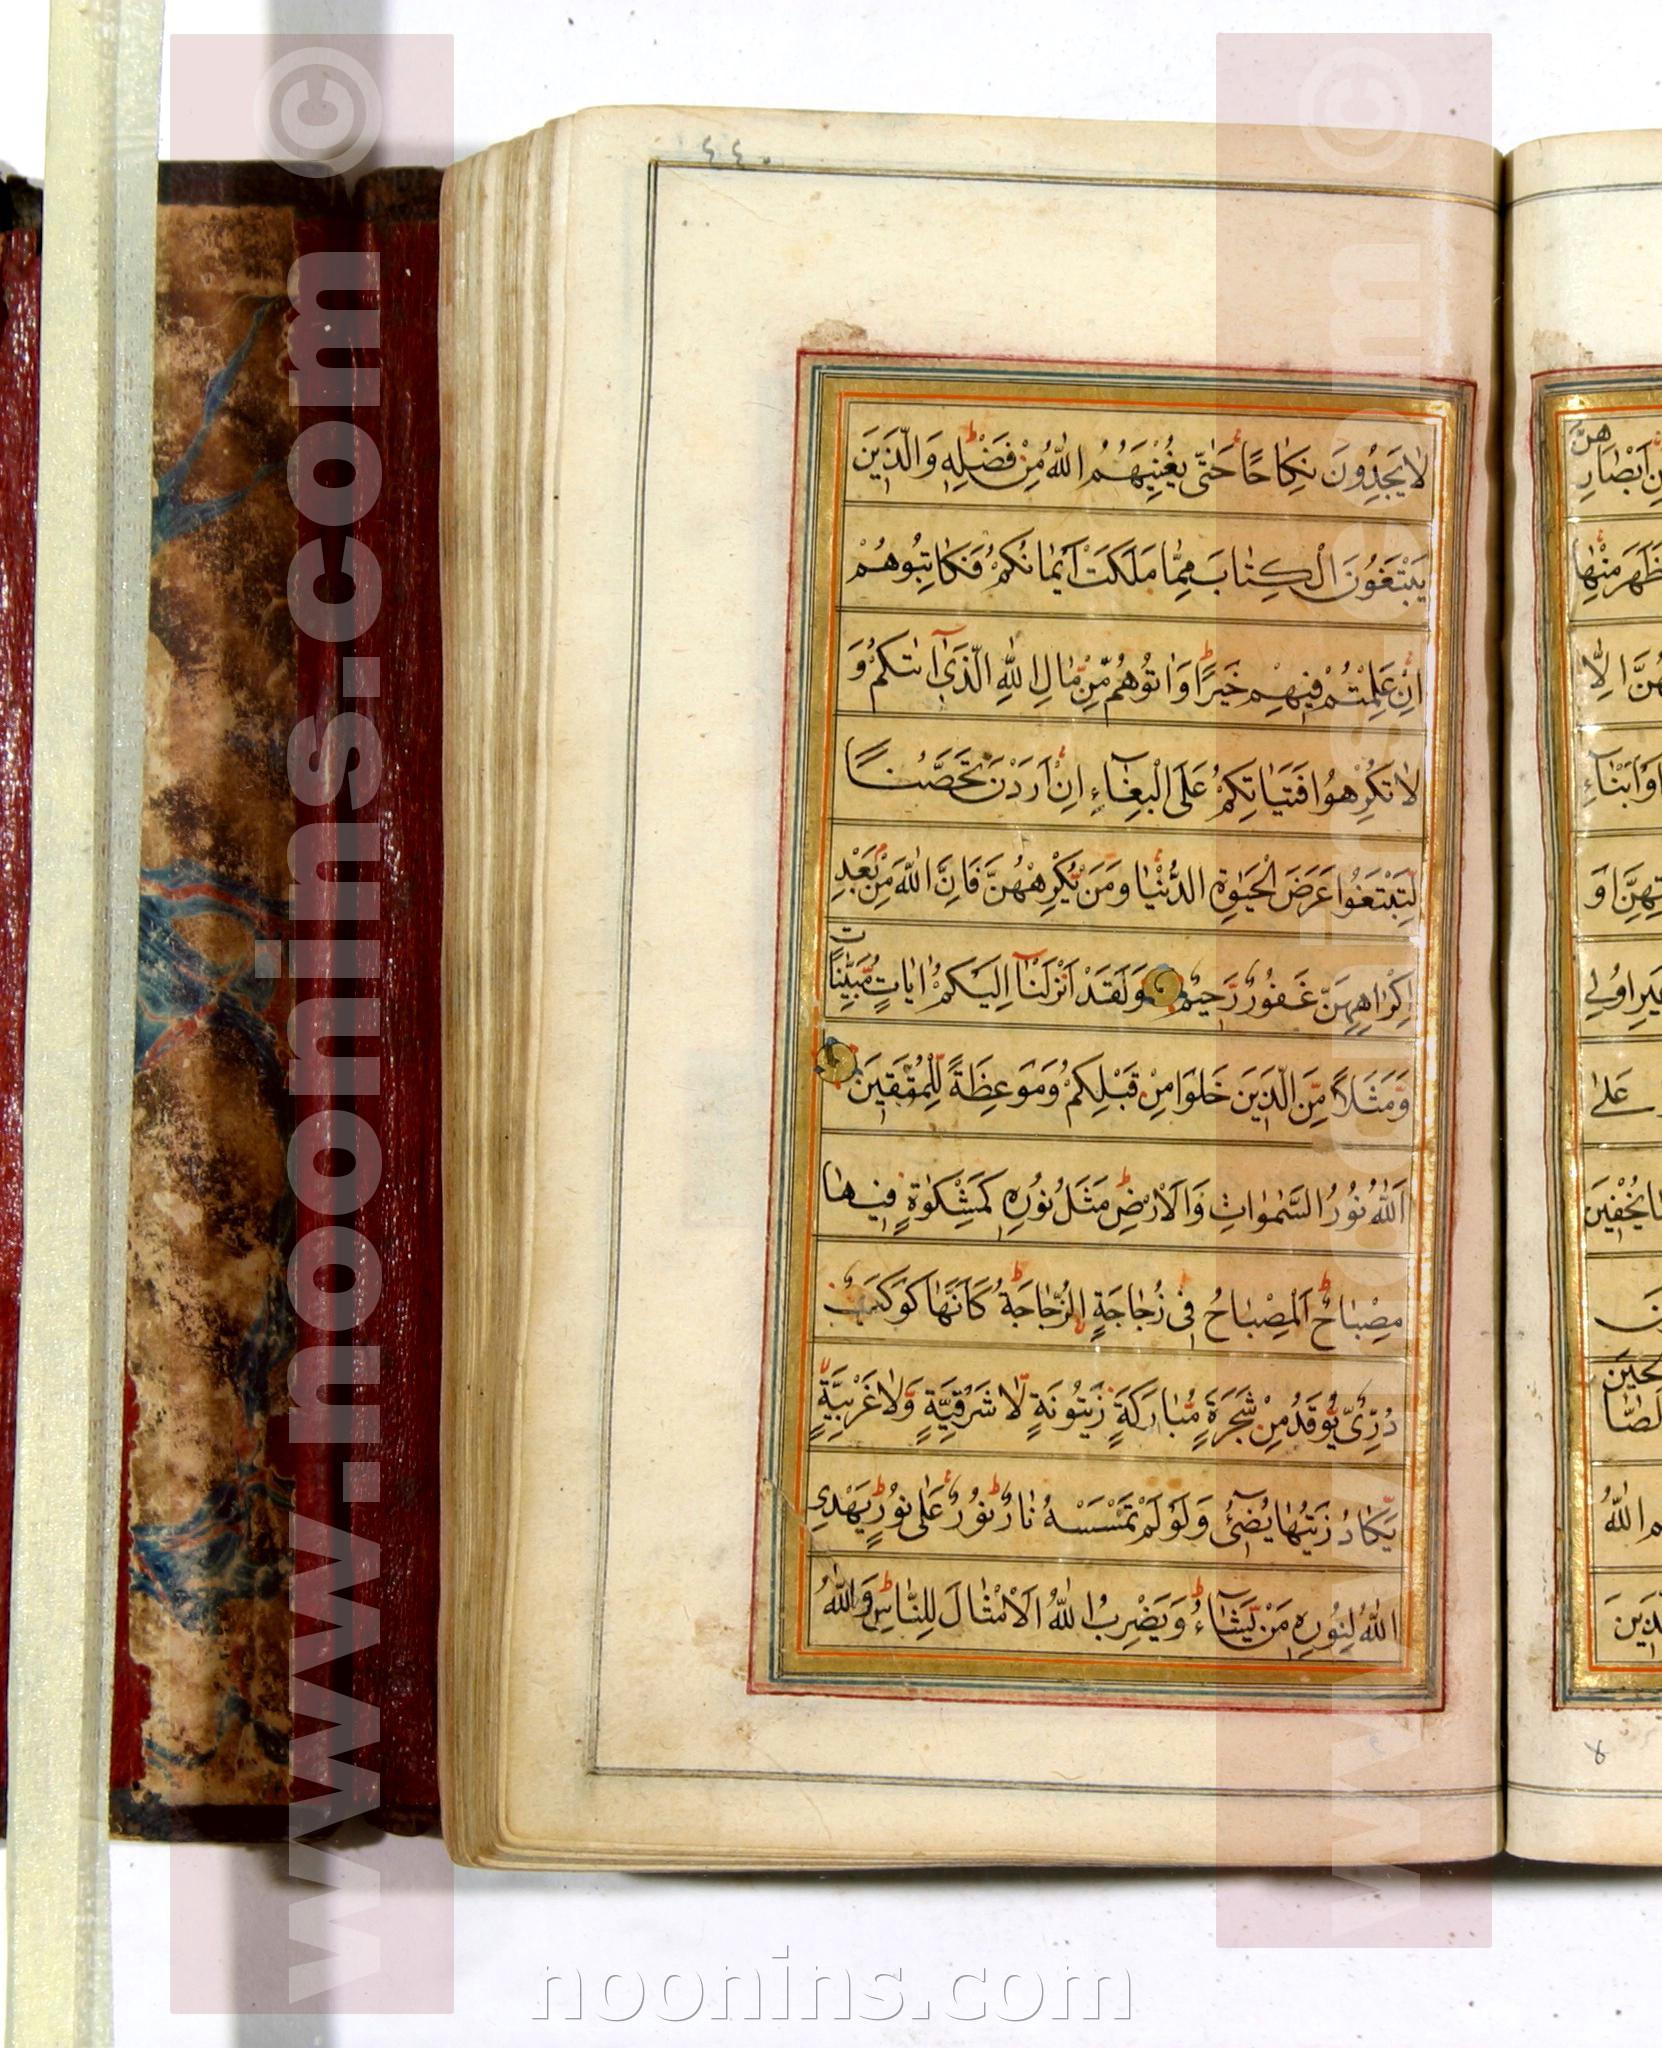 ٤٤٠
لا يَجِدُونَ نِكاحًا حَتّى يُغْنِيَهُمُ اللّٰهُ مِنْ فَضْلِهِ وَالَّذينَ
يَبْتَغُونَ الْكِتابَ مِمّا مَلَكَتْ اَيْمانُكُمْ فَكاتِبُوهُمْ
اِنْ عَلِمْتُمْ فِيهِمْ خَيْرًا وَاٰتُوهُمْ مِّنْ مالِ اللّٰهِ الَّذى اٰتٰكُمْ وَ
لا تُكْرِهُوا فَتَياتِكُمْ عَلَى الْبِغاءِ اِنْ اَرَدْنَ تَحَصُّنًا
لِّتَبْتَغُوا عَرَضَ الْحَيٰوةِ الدُّنْيا وَمَنْ يُّكْرِهْهُنَّ فَاِنَّ اللّٰهَ مِنْ بَعْدِ
اِكْراهِهِنَّ غَفُورٌ رَّحيمٌ وَلَقَدْ اَنْزَلْنا اِلَيْكُمْ اٰياتٍ مُّبَيِّناتٍ
وَّمَثَلاً مِّنَ الَّذينَ خَلَوْا مِنْ قَبْلِكُمْ وَمَوْعِظَةً لِّلْمُتَّقينَ
اَللّٰهُ نُورُ السَّمٰواتِ وَالْاَرْضِ مَثَلُ نُورِهِ كَمِشْكٰوةٍ فيها
مِصْباحٌ اَلْمِصْباحُ فى زُجاجَةٍ الزُّجاجَةُ كَاَنَّها كَوْكَبٌ
دُرِّىٌّ يُّوقَدُ مِنْ شَجَرَةٍ مُّبارَكَةٍ زَيْتُونَةٍ لّا شَرْقِيَّةٍ وَّلا غَرْبِيَّةٍ
يَّكادُ زَيْتُها يُضىءُ وَلَوْ لَمْ تَمْسَسْهُ نارٌ نُورٌ عَلى نُورٍ يَهْدِى
اللّٰهُ لِنُورِهِ مَنْ يَّشاءُ وَيَضْرِبُ اللّٰهُ الْاَمْثالَ لِلنّاسِ وَاللّٰهُ
هِنَّ
اَبْصارِ
ظَهَرَ مِنْها
اِلّا
اَوْ اَبْناءِ
اَوْ
اُولِى
عَلى
يُخْفينَ
اللّٰهُ
www.noonins.com ©
www.noonins.com ©
noonins.com